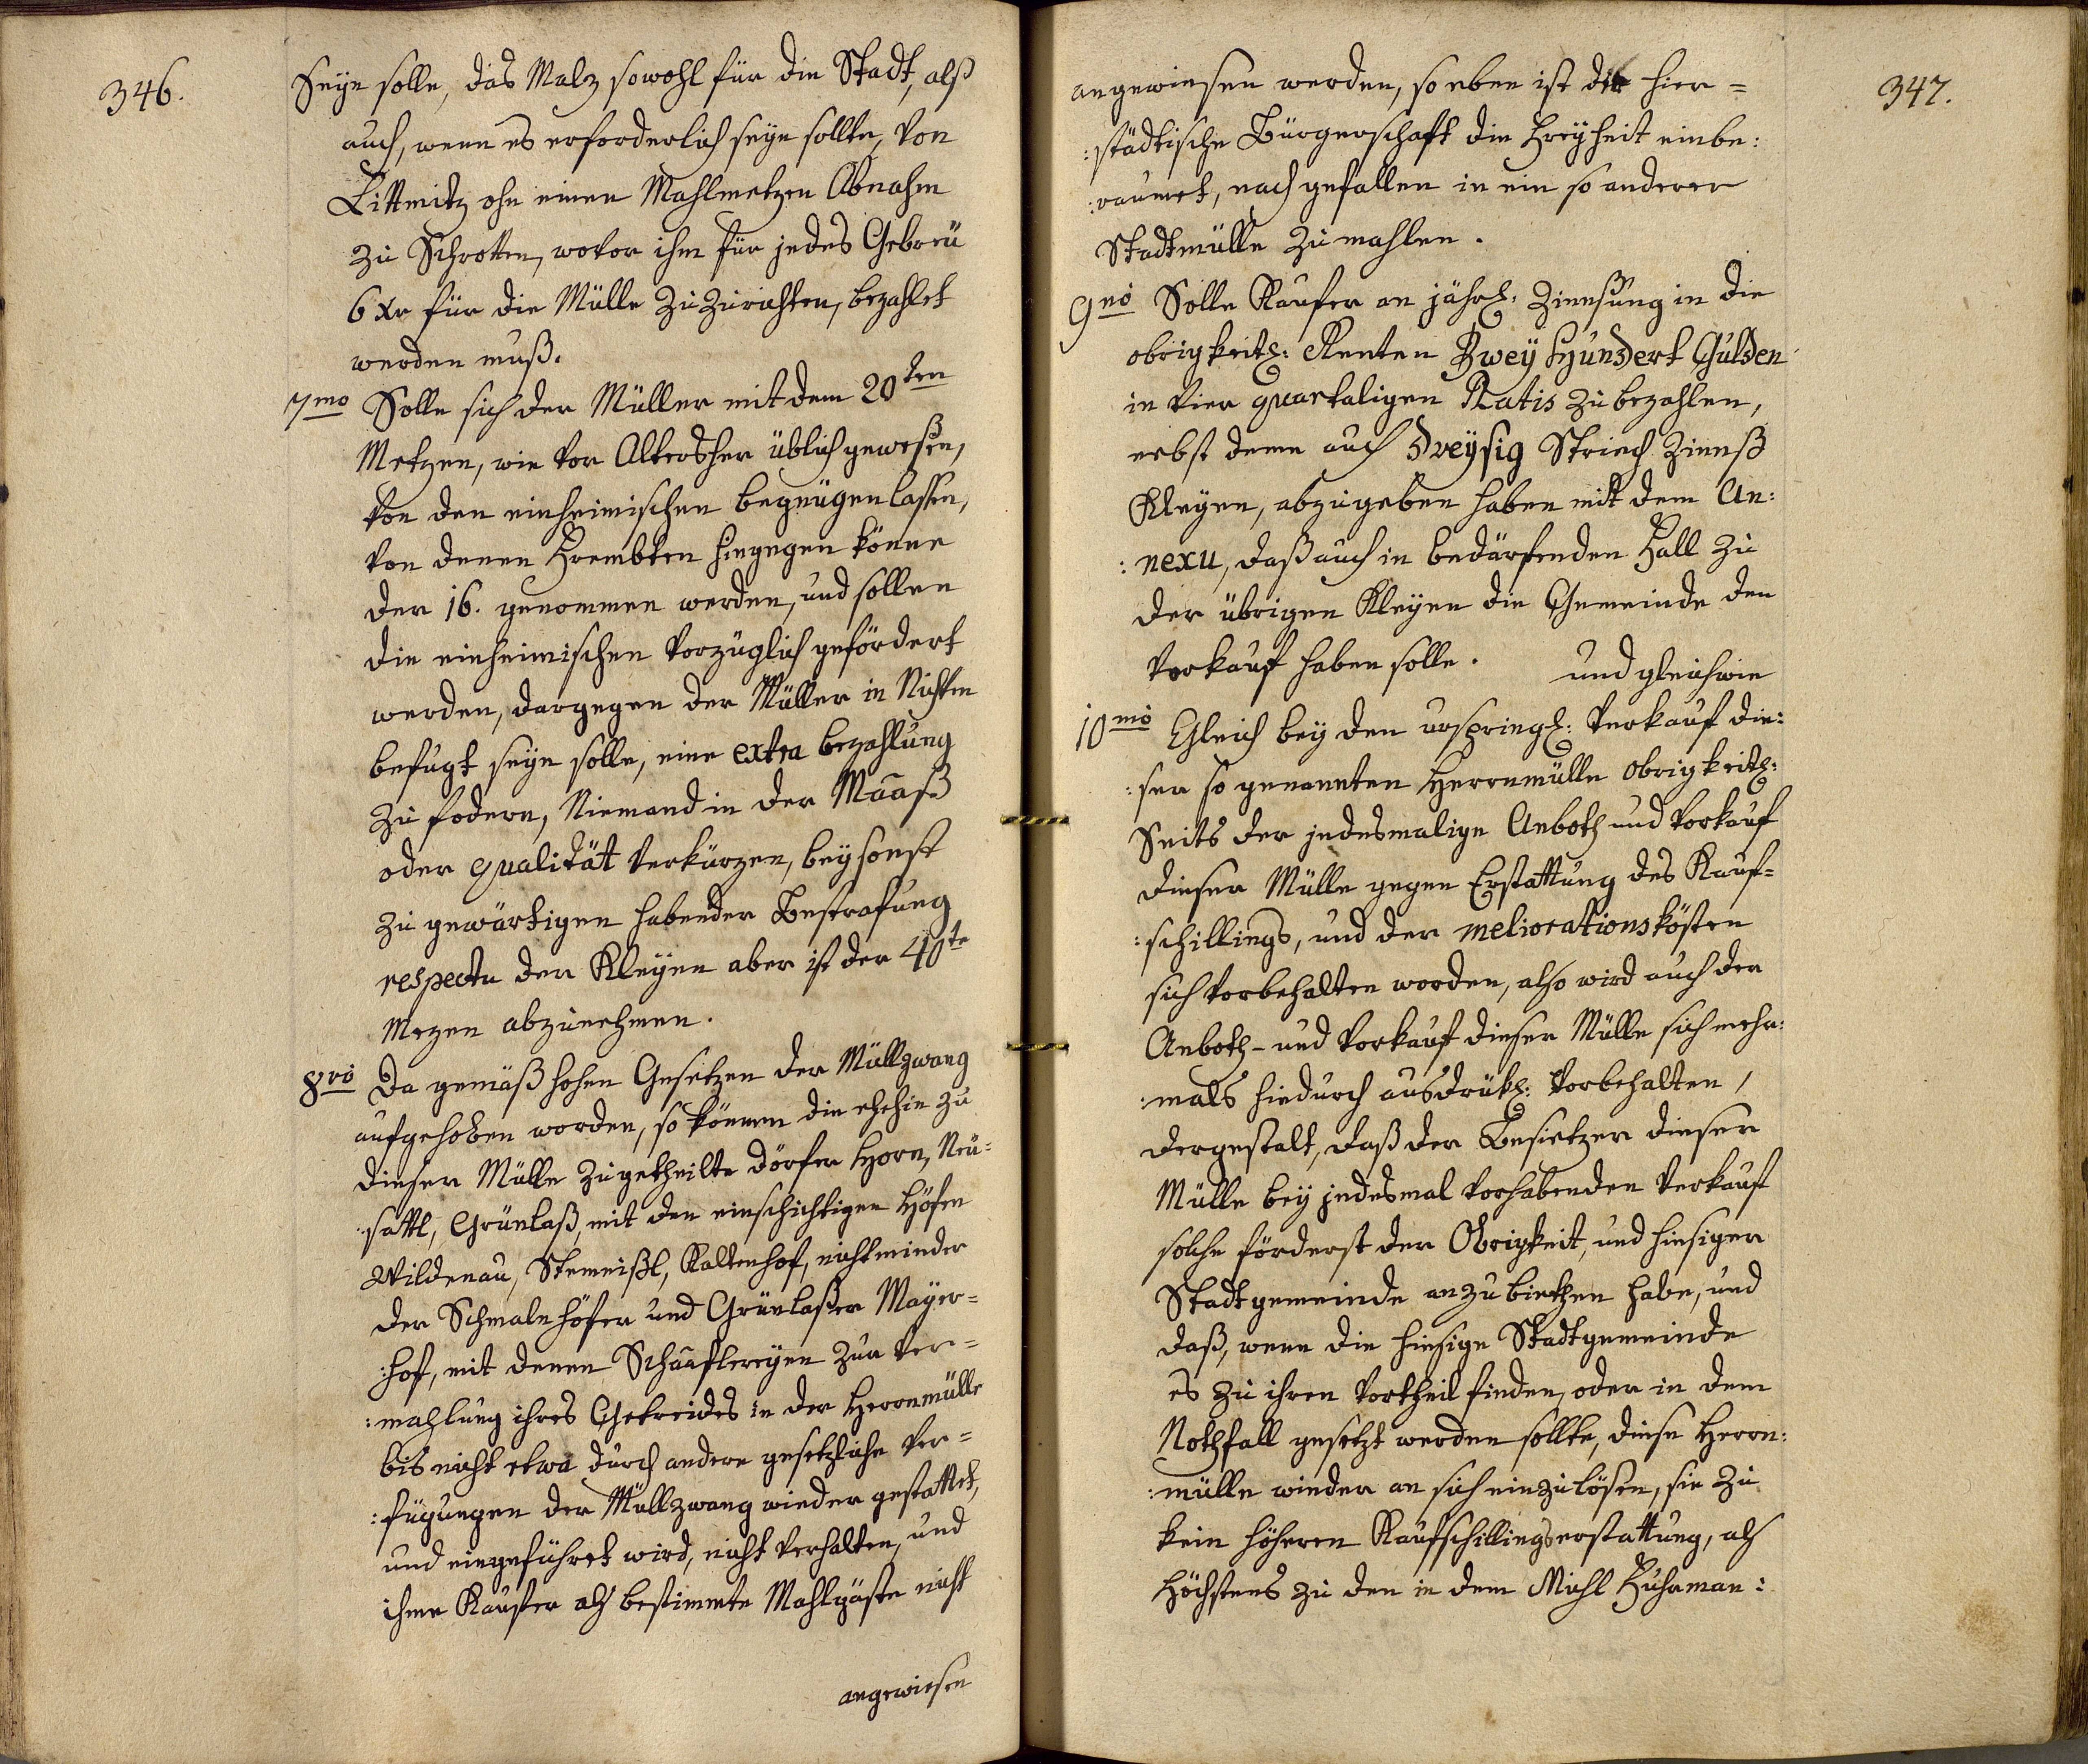 346.
Seÿn solle, das Malz sowohl für die Stadt, alß
auch, wenn es erforderlich seÿn sollte, von
Littmitz ohn einen Mahlmetzen Abnahm
zu Schrotten, wovor ihm für jedes Gebreü
6 Xr für die Mülle zuzurichten, bezahlet
werden muß.
7mo Solle sich der Müller mit dem 20ten
Metzen, wie vor Altersher üblich gewesen,
von den einheimischen begnügen lassen,
von denen Frembten hingegen könne
der 16. genommen werden, und sollen
die einheimischen vorzüglich gefördert
werden, dargegen der Müller in Nichten
befugt seÿn solle, eine extra bezahlung
zu fodern, Niemand in der Maaß
oder qualität verkürzen, beÿ sonst
zu gewärtigen habender Bestrafung
respectu der Kleÿen aber ist der 40te
Mezen abzunehmen.
8vo Da gemäß hohen Gesetzen der Müllzwang
aufgehoben worden, so können die ehehin zu
dieser Mülle zugetheilte dörfer Horn, Neü=
:sattl, Grünlaß, mit den einschichtigen Höfen
Wildenau, Stemeißl, Kaltenhof, nicht minder
der Schmalnhöfer und Grünlaßer Maÿer=
:hof, mit denen Schäaflereÿen zur Ver=
:mahlung ihres Getreides in der Herrnmülle
bis nicht etwa durch andere gesetzliche Ver=
:fügungen der Müllzwang wieder gestattet,
und eingeführet wird, nicht verhalten, und
ihme Kaufer als bestimmte Mahlgäste nicht
angewiesen
347.
angewiesen werden, so eben ist der hier=
:städtische Bürgerschaft die Freÿheit einbe:
:raumet, nach gefallen in ein so anderer
Stadtmülle zu mahlen.
9no Solle Kaufer an jährl: Zinnsung in die
obrigkeitl: Renten Zweÿ Hundert Gulden
in vier quartaligen Ratis zu bezahlen,
nebst deme auch dreÿsig Striech Zinnß
Kleÿen, abzugeben haben mit dem An:
:nexu, daß auch in bedürfenden Fall zu
der übrigen Kleÿen die Gemeinde den
Vorkauf haben solle. und gleichwie
10mo Gleich beÿ den urspringl: Verkauf die:
:ser so genannten Herrnmülle obrigkeitl:
Seits der jedesmalige Anboth und Vorkauf
dieser Mülle gegen Erstattung des Kauf=
:schillings, und der meliorationskösten
sich vorbehalten worden, also wird auch der
Anboth- und Vorkauf dieser Mülle sich mehr:
:mals hiedurch ausdrükl: vorbehalten,
dergestalt, daß der Besietzer dieser
Mülle beÿ jedesmal vorhabenden Verkauf
solche förderst der Obrigkeit, und hiesiger
Stadtgemeinde anzubiethen habe, und
daß, wenn die hiesige Stadtgemeinde
es zu ihren Vortheil finden, oder in dem
Nothfall gesetzt werden sollte, diese Herrn:
:mülle wieder an sich einzulösen, sie zu
kein höheren Kaufschillingserstattung, als
höchstens zu den in dem Michl Fuhrman: